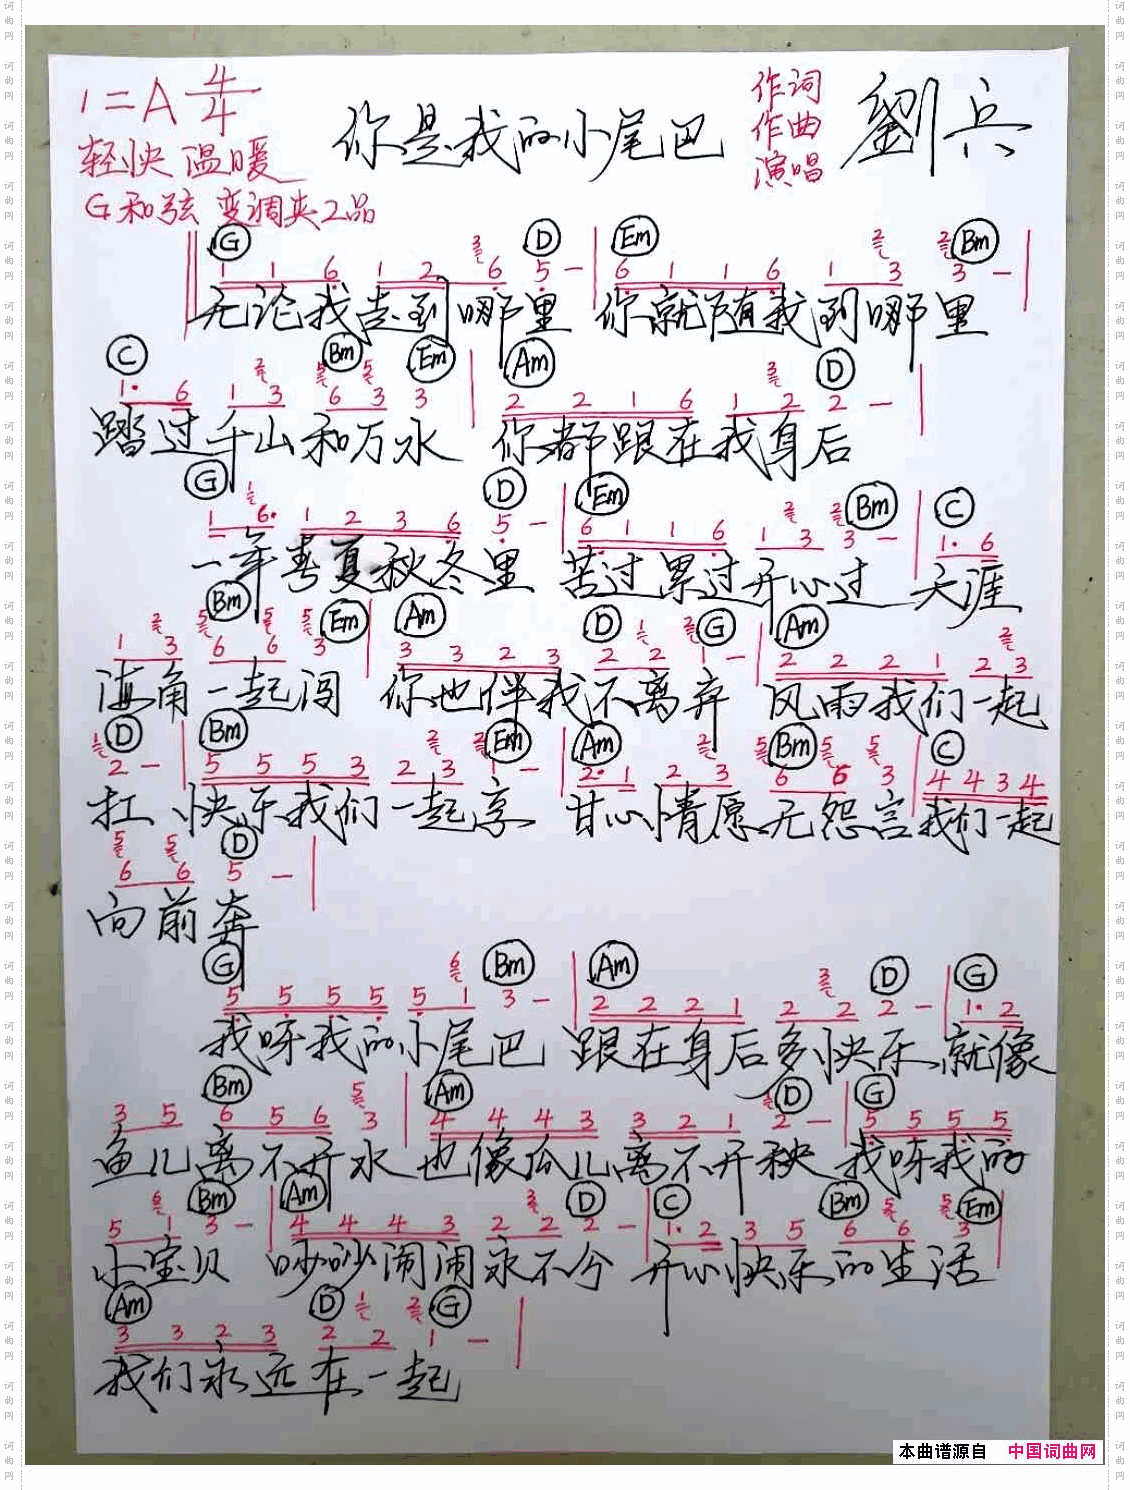 1=A 4/4
你是我的小尾巴
作词
作曲
演唱
劉兵
轻快 温暖
G和弦 变调夹2品
G D Em Bm
1 1 6 1 2 6 5 - 6 1 1 6 1 3 3 -
无论我走到哪里 你就随我到哪里
C Bm Em Am D
1· 6 1 3 6 3 3 2 2 1 6 1 2 2 -
踏过千山和万水 你都跟在我身后
G D Em Bm C
1 6· 1 2 3 6 5 - 6 1 1 6 1 3 3 - 1· 6
一年春夏秋冬里 苦过累过开心过 天涯
Bm Em Am D G Am
1 3 6 6 3 3 3 2 3 2 2 1 - 2 2 2 1 2 3
海角一起闯 你也伴我不离弃 风雨我们一起
D Bm Em Am Bm C
2 - 5 5 5 3 2 3 1 - 2· 1 2 3 6 6 3 4 4 3 4
扛 快乐我们一起享 甘心情愿无怨言 我们一起
D
6 6 5 -
向前奔
G Bm Am D G
5 5 5 5 5 1 3 - 2 2 2 1 2 2 2 - 1· 2
我呀我的小尾巴 跟在身后多快乐 就像
Bm Am D G
3 5 6 5 6 3 4 4 4 3 3 2 1 2 - 5 5 5 5
鱼儿离不开水 也像瓜儿离不开秧 我呀我的
Bm Am D C Bm Em
5 1 3 - 4 4 4 3 2 2 2 - 1· 2 3 5 6 6 3
小宝贝 吵吵闹闹永不分 开心快乐的生活
Am D G
3 3 2 3 2 2 1 -
我们永远在一起
本曲谱源自 中国词曲网